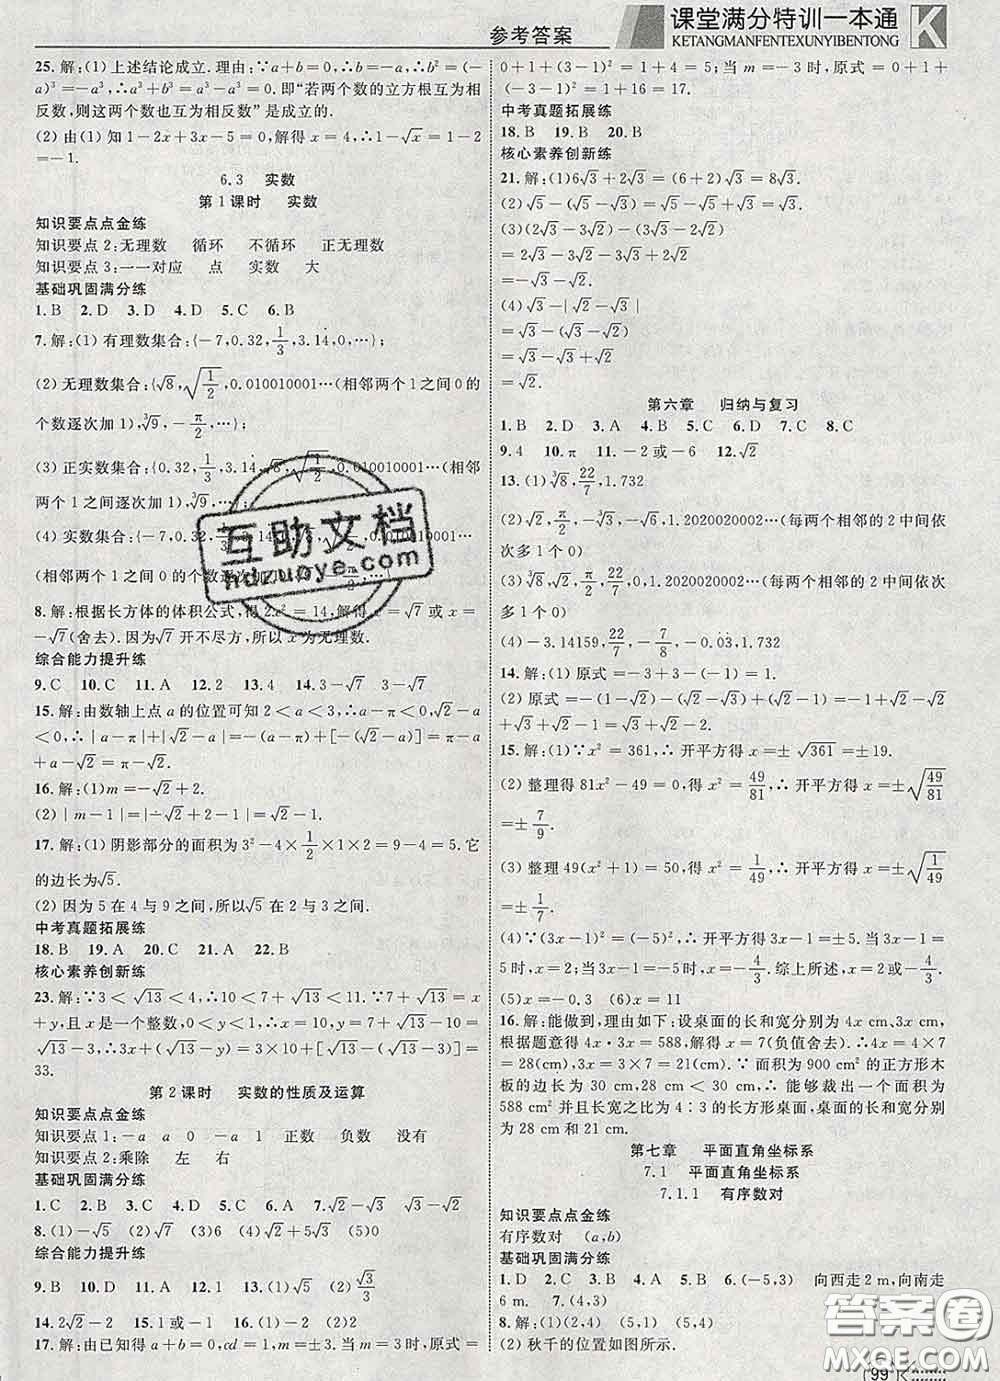 参考答案
课堂满分特训一本通
KETANGMANFENTEXUNYIBENTONG
25.解:(1)上述结论成立.理由:∵a+b=0,∴b=-a,∴b²=(-
a)³=-a³,∴a³+b³=a³-a³=0.即“若两个数的立方根互为相
反数,则这两个数也互为相反数”是成立的.
(2)由(1)知1-2x+3x-5=0,解得x=4,∴1-√x=1-2
=-1.
6.3 实数
第1课时 实数
知识要点点金练
知识要点2:无理数 循环 不循环 正无理数
知识要点3:一一对应 点 实数 大
基础巩固满分练
1.B 2.D 3.D 4.D 5.C 6.B
7.解:(1)有理数集合:{-7,0.32,1/3,3.14,0,…};
(2)无理数集合:{√8,√(1/2),0.010010001…(相邻两个1之间0的
个数逐次加1),³√9,-π/2,…};
(3)正实数集合:{0.32,1/3,3.14,√8,√(1/2),0.010010001…(相邻
两个1之间逐次加1),³√9,…};
(4)实数集合:{-7,0.32,1/3,
(相邻两个1之间0的个数逐次加
8.解:根据长方体的体积公式,得2x²=14,解得x=√7或x=
-√7(舍去).因为√7开不尽方,所以x为无理数.
综合能力提升练
9.C 10.C 11.A 12.2 13.4 14.3-√7 3-√7
15.解:由数轴上点a的位置可知2<a<3,∴a-π<0,√2-a
<0,∴|a-π|+|√2-a|=-(a-π)+[-(√2-a)]=π-
a+a-√2=π-√2.
16.解:(1)m=-√2+2.
(2)|m-1|=|-√2+2-1|=√2-1.
17.解:(1)阴影部分的面积为3²-4×1/2×1×2=9-4=5.它
的边长为√5.
(2)因为5在4与9之间,所以√5在2与3之间.
中考真题拓展练
18.B 19.A 20.C 21.A 22.B
核心素养创新练
23.解:∵3<√13<4,∴10<7+√13<11,∵7+√13=x
+y,且x是一个整数,0<y<1,∴x=10,y=7+√13-10=
√13-3,∴3x+(√13-y)=3×10+[√13-(√13-3)]=
33.
第2课时 实数的性质及运算
知识要点点金练
知识要点1:-a a 0 -a 1 正数 负数 没有
知识要点2:乘除 左 右
基础巩固满分练
1.C 2.C 3.B 4.B 5.A 6.1 7.√2-√3 √3-√2
8.(1)-√5 (2)√7 (3)6 (4)√2+5√3 (5)0
综合能力提升练
9.B 10.D 11.A 12.1 13.(1)√5 (2)√3/3
14.2√2-2 15.1或-√3 16.(1)-1 (2)2
17.解:由已知得a+b=0,cd=1,m=±3,当m=3时,原式=
0+1+(3-1)²=0+1+4=5;当m=-3时,原式=0+1+
(-3-1)²=0+1+16=17.
中考真题拓展练
18.B 19.B 20.B
核心素养创新练
21.解:(1)6√3+2√3=(6+2)√3=8√3.
(2)√5-(√5-√3)=√5-√5+√3=√3.
(3)(2√3-3√2)-(3√3-2√2)
=2√3-3√2-3√3+2√2
=-√3-√2.
(4)√3-|√2-√3|
=√3-(√3-√2)
=√3-√3+√2
=√2.
第六章 归纳与复习
1.B 2.D 3.A 4.B 5.C 6.D 7.C 8.C
9.4 10.π 11.-2或-6 12.√2
13.(1)³√8,22/7,1.732
(2)√2,π/2,-³√3,-√6,1.2020020002…(每两个相邻的2中间依
次多1个0)
(3)³√8,√2,22/7,π/2,0,1.2020020002…(每两个相邻的2中间依次
多1个0)
(4)-3.14159,22/7,-7/8,-0.03,1.732
14.解:(1)原式=-3+3-(-1)=1.
(2)原式=-(1-√2)-(√2-√3)+(2-√3)=-1+√2-√2
+√3+2-√3=1.
15.解:(1)∵x²=361,∴开平方得x=±√361=±19.
(2)整理得81x²-49=0,得x²=49/81,∴开平方得x=±√(49/81)
=±7/9.
(3)整理49(x²+1)=50,得x²=1/49,∴开平方得x=±√(1/49)
=±1/7.
(4)∵(3x-1)²=(-5)²,∴开平方得3x-1=±5.当3x-1=
5时,x=2;当3x-1=-5时,x=-4/3.综上所述,x=2或-4/3.
(5)x=-0.3 (6)x=11
16.解:能做到,理由如下:设桌面的长和宽分别为4x cm、3x cm,
根据题意得4x·3x=588,解得x=7(负值舍去).∴4x=4×7
=28(cm),3x=3×7=21(cm).∵面积为900 cm²的正方形木
板的边长为30 cm,28 cm<30 cm,∴能够裁出一个面积为
588 cm²并且长宽之比为4∶3的长方形桌面,桌面的长宽分别
为28 cm和21 cm.
第七章 平面直角坐标系
7.1 平面直角坐标系
7.1.1 有序数对
知识要点点金练
有序数对 (a,b)
基础巩固满分练
1.D 2.C 3.D 4.A 5.B 6.(-5,3) 向西走2 m,向南走
6 m. 7.(4,3)
8.解:(1)(2,4) (5,4)
(2)秋千的位置如图所示.
99
互助文档
hdzuoye.com
答案圈
MXQE.COM